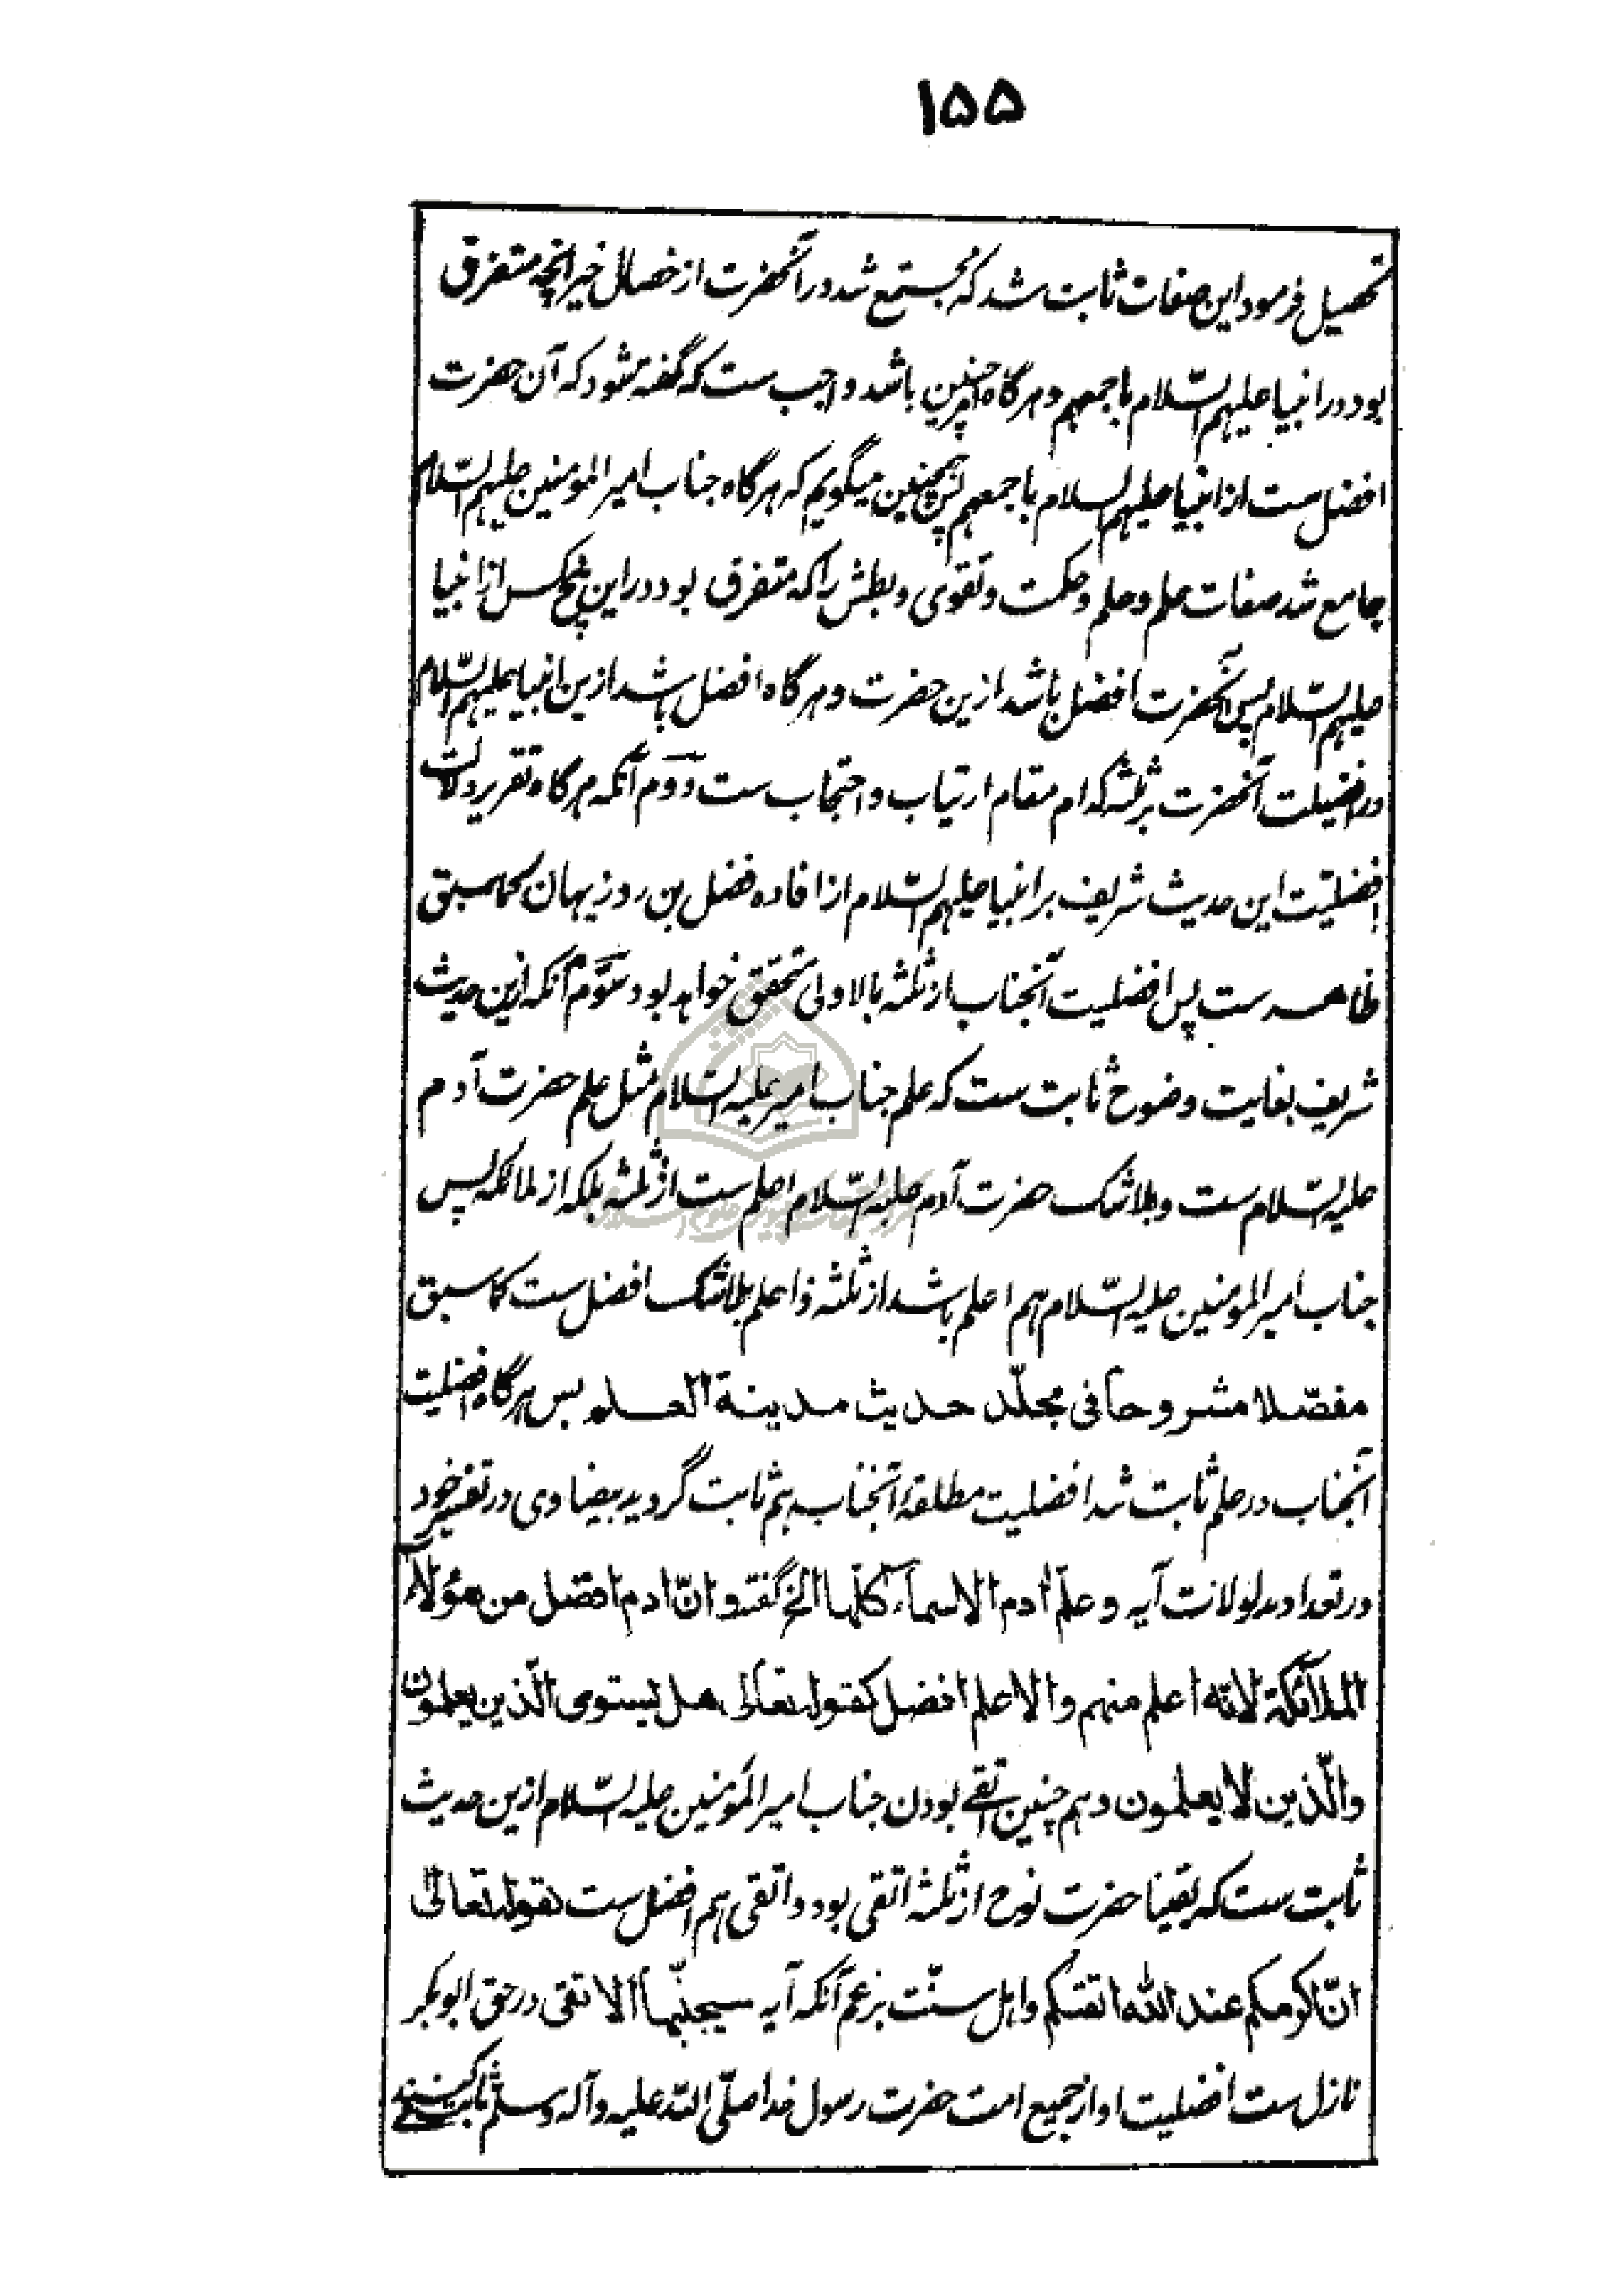 ۱۵۵
تحصیل فرمود این صفات ثابت شد که مجتمع شد در آنحضرت از خصال خیر آنچه متفرق
بود در انبیا علیهم السّلام باجمعهم و هرگاه امر چنین باشد واجب ست که گفته شود که آن حضرت
افضل ست از انبیا علیهم السلام باجمعهم پس همچنین میگویم که هرگاه جناب امیر المومنین علیهم السّلام
جامع شد صفات علم و حلم و حکمت و تقوی و بطش را که متفرق بود در این پنج کس از انبیا
علیهم السّلام پس آنحضرت افضل باشد ازین حضرت و هرگاه افضل باشد ازین انبیا علیهم السّلام
در افضیلت آنحضرت بر ثلثه کدام مقام ارتیاب و احتجاب ست دوم آنکه هرگاه تقریر دلالت
افضلیّت این حدیث شریف بر انبیا علیهم السّلام از افاده فضل بن روزبهان کما سبق
ظاهر ست پس افضلیت آنجناب از ثلثه بالاولی متحقق خواهد بود سوّم آنکه ازین حدیث
شریف بغایت وضوح ثابت ست که علم جناب امیر علیه السّلام مثل علم حضرت آدم
علیه السّلام ست و بلاشک حضرت آدم علیه السّلام اعلم ست از ثلثه بلکه از ملائکه پس
جناب امیر المومنین علیه السّلام هم اعلم باشد از ثلثه و اعلم بلاشک افضل ست کما سبق
مفصّلا مشروحا فی مجلّد حدیث مدینة العلم پس هرگاه افضلیت
آنجناب در علم ثابت شد افضلیت مطلقهٔ آنجناب هم ثابت گردید بیضاوی در تفسیر خود
در تعداد مدلولات آیه و علّم آدم الاسمآء کلّها الخ گفته و انّ ادم افضل من هؤلآء
الملآئکة لانّه اعلم منهم و الاعلم افضل کقوله تعالی هل یستوی الّذین یعلمون
والّذین لا یعلمون و هم چنین اتقی بودن جناب امیر المؤمنین علیه السّلام ازین حدیث
ثابت ست که یقینا حضرت نوح از ثلثه اتقی بود و اتقی هم افضل ست لقوله تعالی
انّ اکرمکم عند الله اتقکم و اهل سنّت بزعم آنکه آیه سیجنّبها الاتقی در حق ابو بکر
نازل ست افضلیت او از جمیع امت حضرت رسول خدا صلّی الله علیه و آله و سلم ثابت کنند